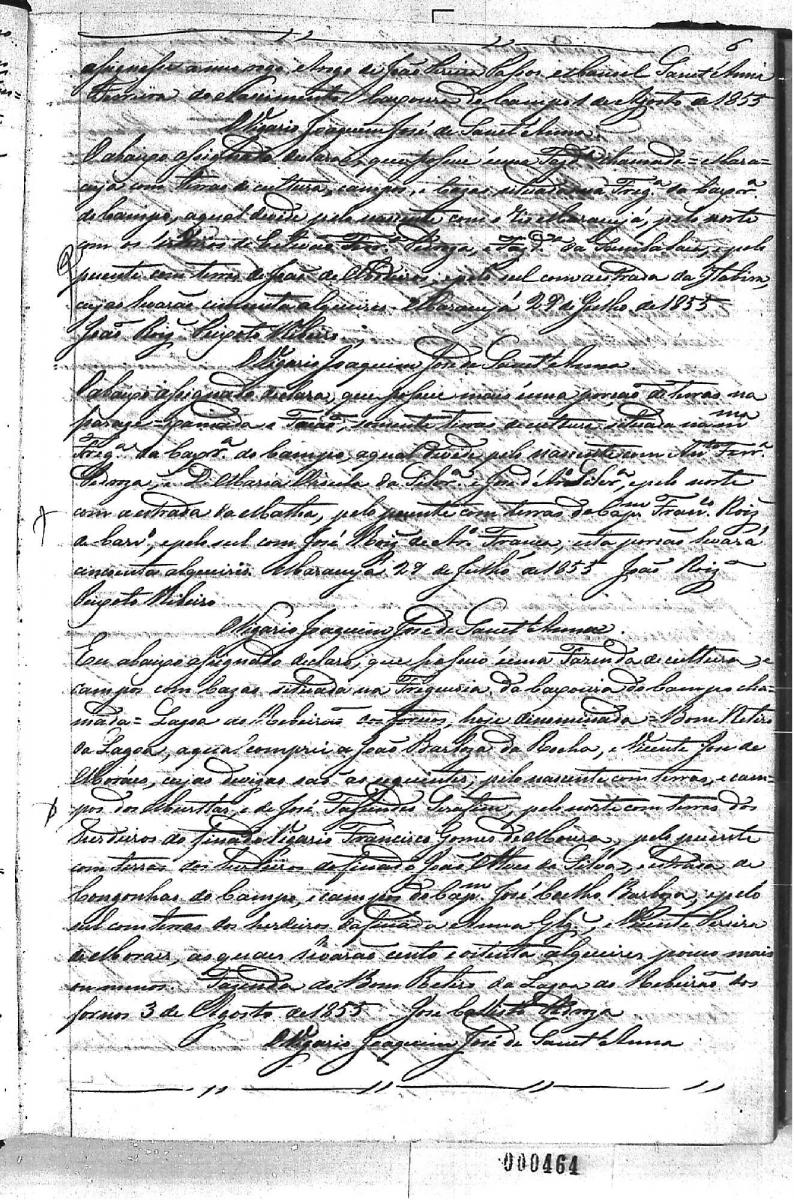 6
assignar a meu rogo. Arogo de João Pereira Passos, e Manoel Sanct'Anna
Ferreira do Nascimento. Caxoeira do Campo 1 de Agosto de 1855
O Vigario Joaquim José de Sanct'Anna.
O abaixo assignado declara, que possue uma Fazda chamada = Mara=
cujá com terras de cultura, campos, e cazas situada na Frega da Caxora
do Campo, a qual divide pelo nascente com o Rio Maracujá, pelo norte
com os herdeiros de Ferra Pedroza, e Fazda da e pelo
puente com terras de João de Medeiros, e pelo sul com a estrada da Itabira,
cujas levarão cincoenta alqueires. Maracujá 29 de Julho de 1855
João Roiz Peixoto Ribeiro
O Vigario Joaquim José de Sanct'Anna
O abaixo assignado declara, que possue mais uma porção de terras na
parage = e somente terras de cultura situada na mma
Frega da Caxora do Campo, a qual divide pelo nascente com Anto Ferra
Pedroza, e D. Maria da e pelo norte
com a estrada da Matha, pelo puente com terras do Capm Franco Roiz
de Carvo, e pelo sul com José Roiz de França; esta porção levará
cincoenta alqueires Maracujá 29 de Julho de 1855 João Roiz
Peixoto Ribeiro
O Vigario Joaquim José de Sanct'Anna.
Eu abaixo assignado declaro, que possuo uma Fazenda de cultura, e
campos com cazas situada na Freguezia da Caxoeira do Campo cha=
mada = Lagoa do Ribeirão dos fornos, hoje denominada = Bom Retiro
da Lagoa, a qual comprei a João Barboza da Rocha, e Vicente José de
Moraes, cujas divizas são as seguintes, pelo nascente com terras, e cam=
pos dos e de José Fagundes Serafim, pelo norte com terras dos
herdeiros do finado Vigario Francisco Gomes de Moura, pelo puente
com terras dos herdeiros do finado João Alves da Silva, e estrada de
Congonhas do Campo, e campos do Capm José Coelho Barboza, e pelo
sul com terras dos herdeiros da finada Anna Glz, e Vicente Pereira
de Moraes, as quaes levarão cento e oitenta alqueires pouco mais
ou menos. Fazenda do Bom Retiro da Lagoa do Ribeirão dos
fornos 3 de Agosto de 1855 José Calisto Pedroza
O Vigario Joaquim José de Sanct'Anna
000464